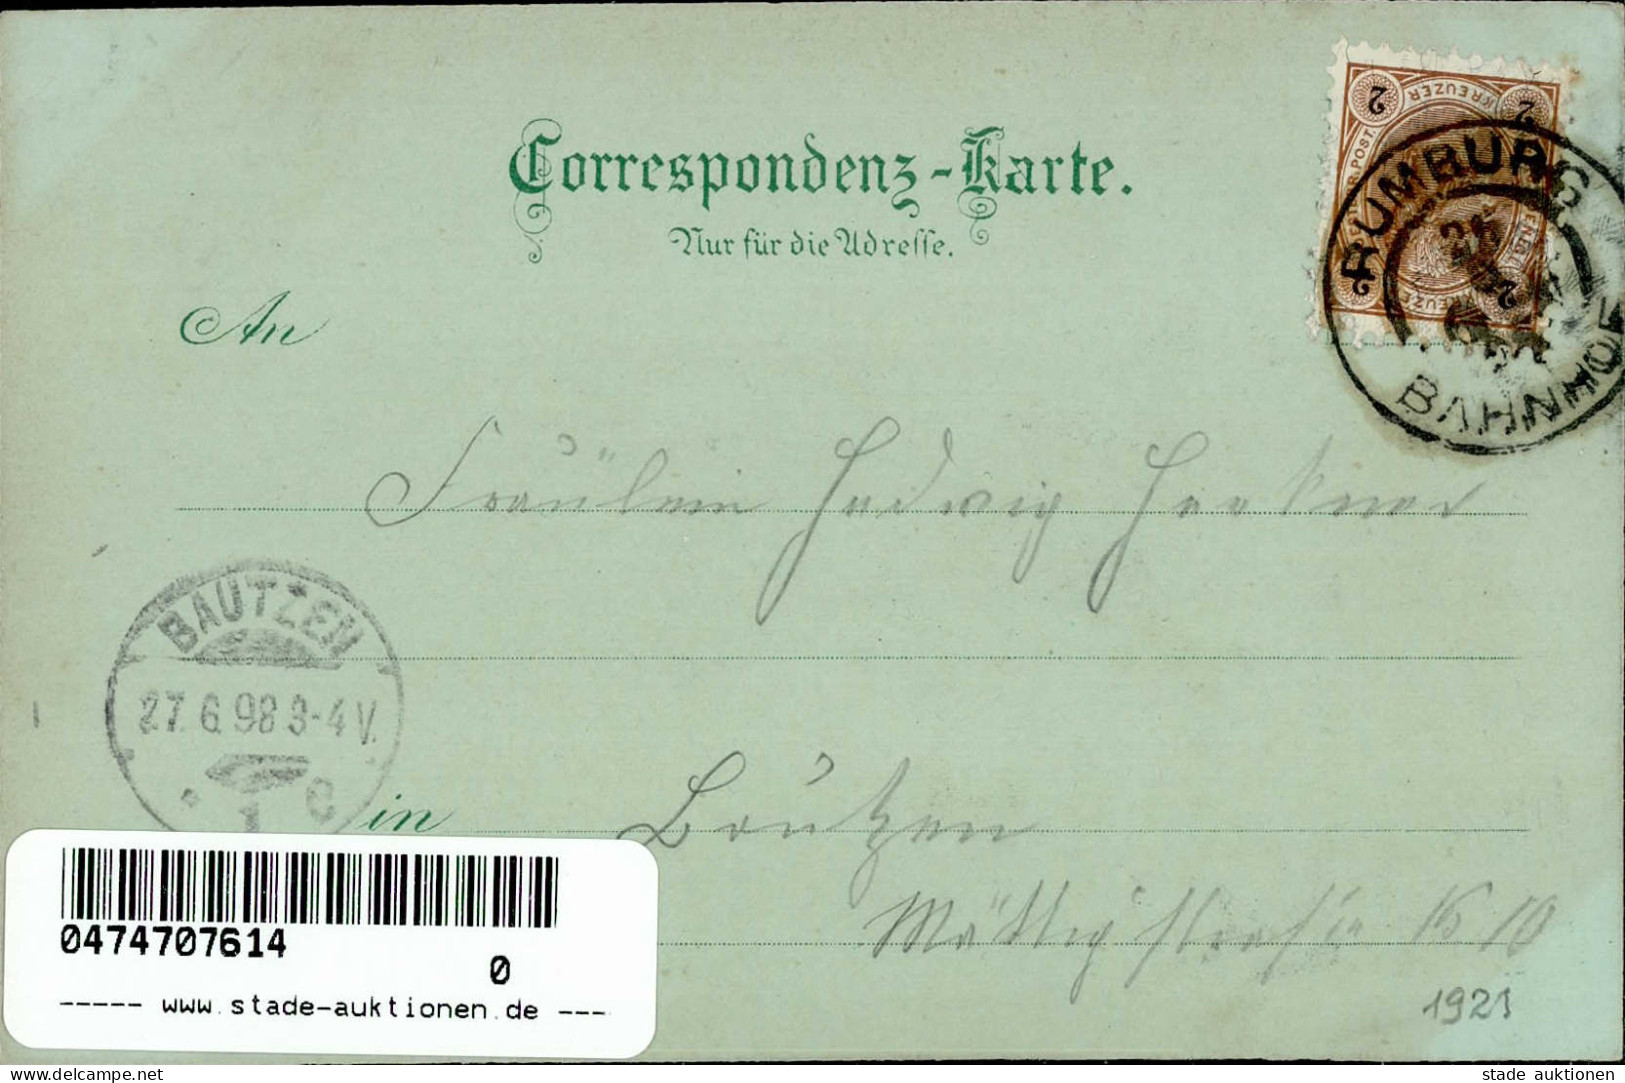 Correspondenz-Karte.
Nur für die Adresse.
2 KREUZER 2
POST
2 KREUZER 2
RUMBURG
BAHNHOF
An
Fräulein Hedwig
BAUTZEN
27.6.98 3-4 V.
1 C
in Bautzen
Mättigstraße 10
1921
0474707614
0
----- www.stade-auktionen.de ---
www.delcampe.net
stade auktionen